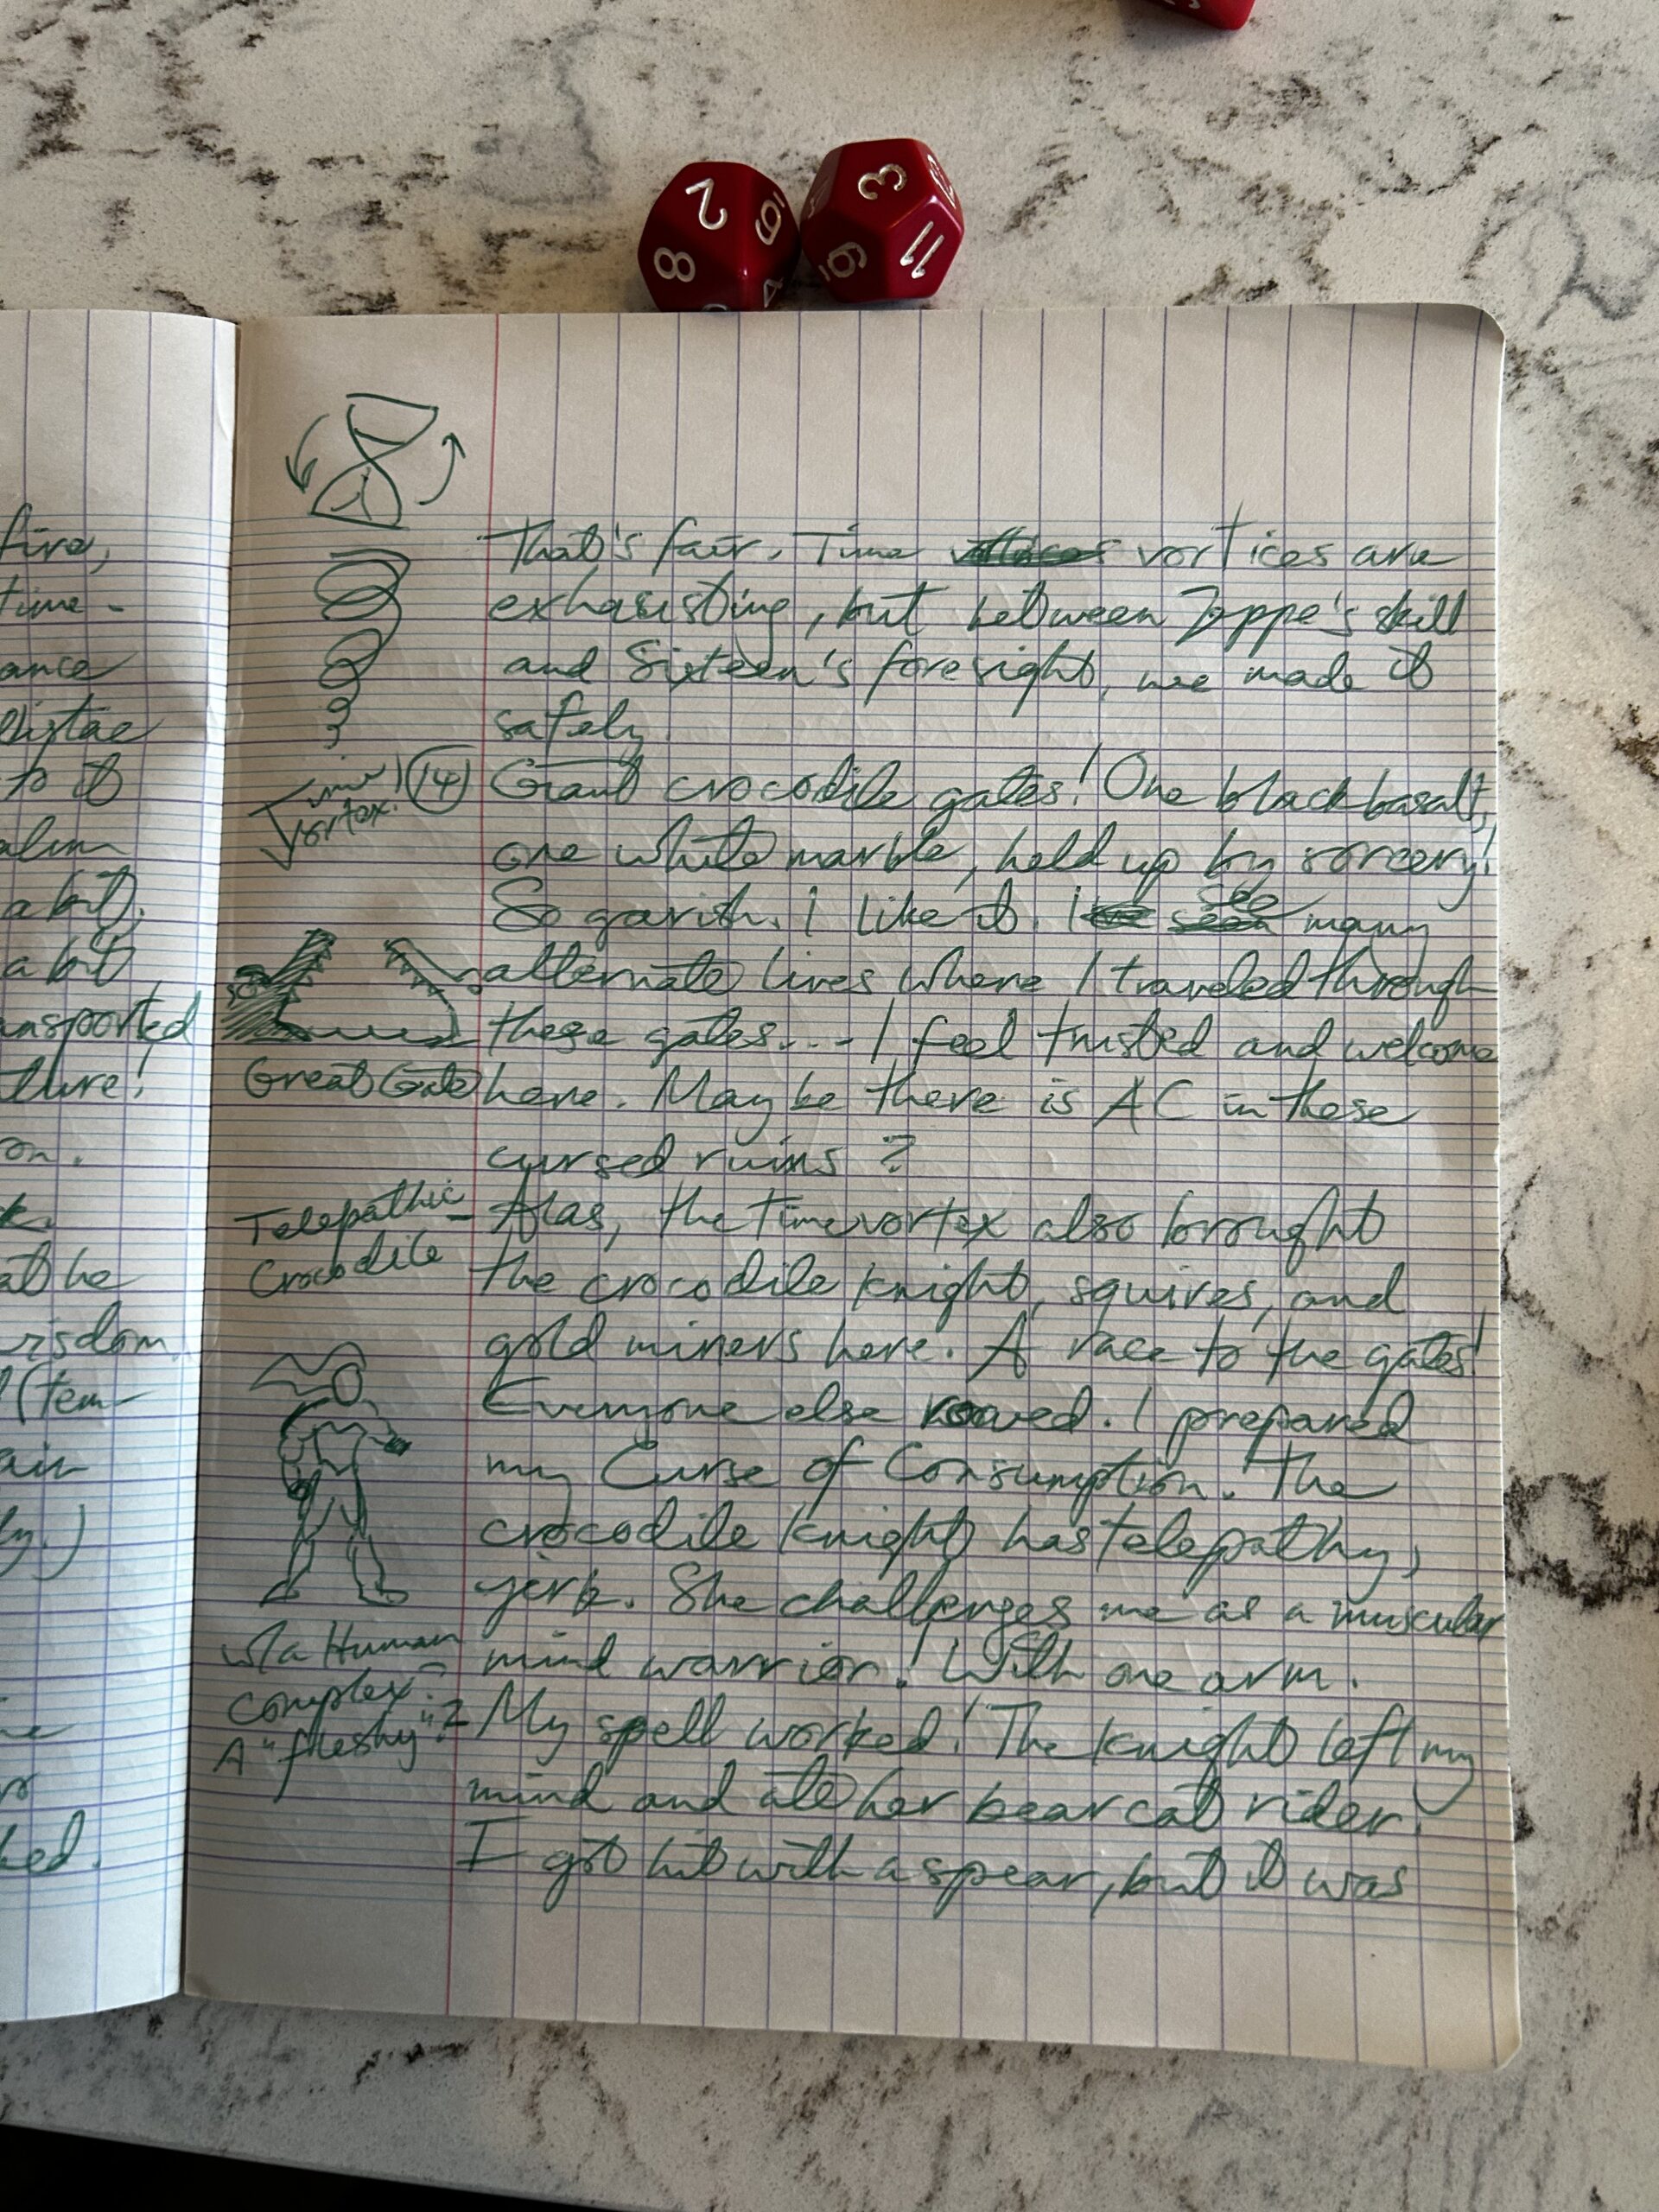 2
8
3
11
9
fire,
time-
ance
to it
a bit.
a bit
ansported
ture!
on.
k.
at he
wisdom.
(tem-
ain
ly.)
ked.
That's fair. Time vortices are
exhausting, but between Zoppe's skill
and Sixteen's foresight, we made it
safely.
Time Vortex!
14
Giant crocodile gates! One black basalt,
one white marble, held up by sorcery!
So garish. I like it. I see many
alternate lives where I traveled through
these gates... I feel trusted and welcome
Great Gate
here. Maybe there is AC in these
cursed ruins?
Telepathic
Crocodile
Alas, the time vortex also brought
the crocodile knight, squires, and
gold miners here. A race to the gates!
Everyone else rowed. I prepared
my Curse of Consumption. The
crocodile knight has telepathy,
jerk. She challenges me as a muscular
mind warrior! With one arm.
w/a Human
Complex?
A "fleshy"?
My spell worked! The knight left my
mind and ate her bearcat rider.
I got hit with a spear, but it was